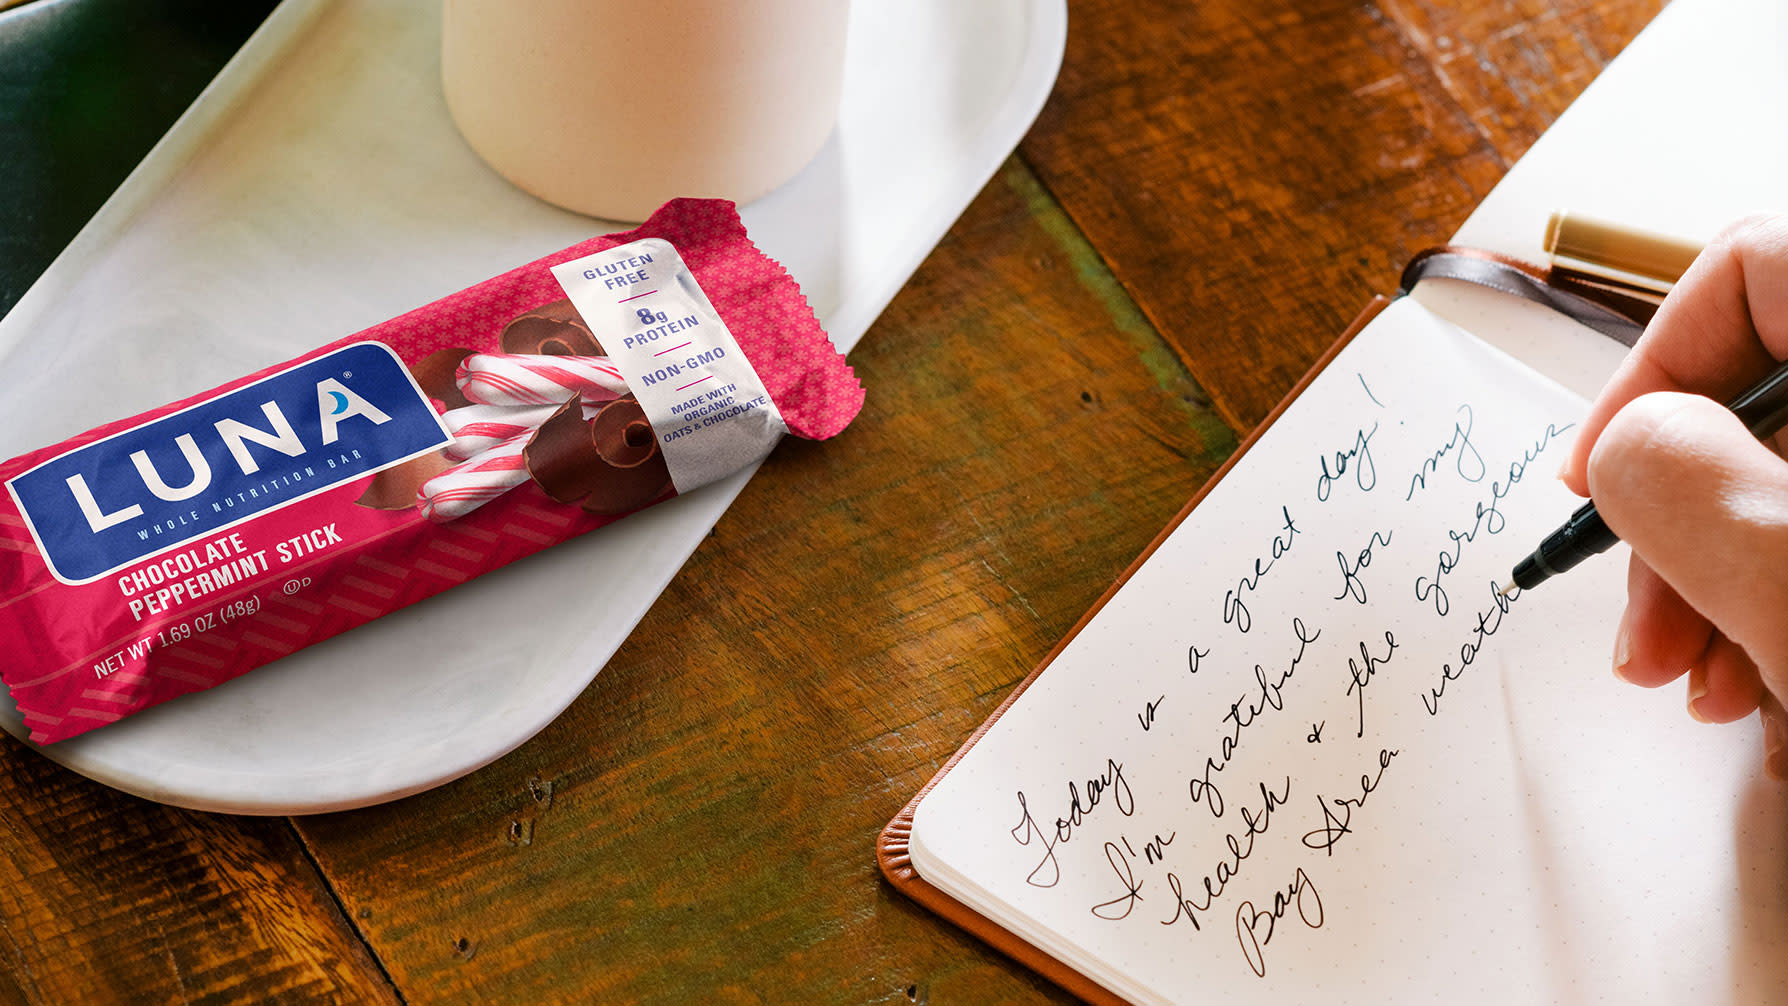 LUNA®
WHOLE NUTRITION BAR
CHOCOLATE
PEPPERMINT STICK
NET WT 1.69 OZ (48g) Ⓤ D
GLUTEN
FREE
8g
PROTEIN
NON-GMO
MADE WITH
ORGANIC
OATS & CHOCOLATE
Today is a great day!
I'm grateful for my
health & the gorgeous
Bay Area weath